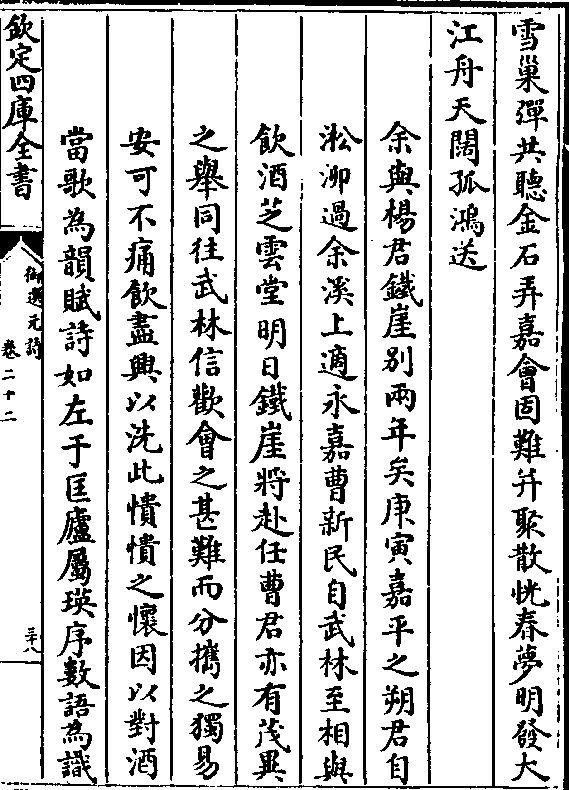 雪巢彈共聽金石弄嘉會固難并聚散恍春夢明發大
江舟天闊孤鴻送
余與楊君鐵崖别兩年矣庚寅嘉平之朔君自
淞泖過余溪上適永嘉曹新民自武林至相與
飲酒芝雲堂明日鐵崖將赴任曹君亦有茂異
之舉同往武林信歡會之甚難而分攜之獨易
安可不痛飲盡興以洗此憒憒之懷因以對酒
當歌為韻賦詩如左于匡廬屬瑛序數語為識
欽定四庫全書
御選元詩
卷二十二
三十八